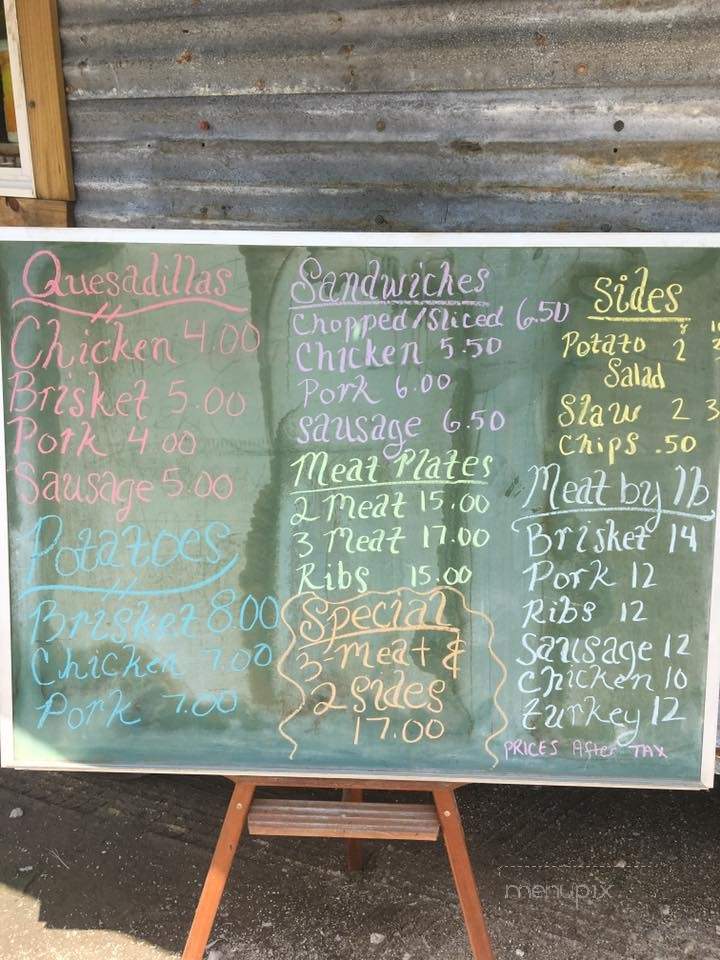 Quesadillas
Chicken 4.00
Brisket 5.00
Pork 4.00
Sausage 5.00
Potatoes
Brisket 8.00
Chicken 7.00
Pork 7.00
Sandwiches
Chopped/Sliced 6.50
Chicken 5.50
Pork 6.00
Sausage 6.50
Meat Plates
2 Meat 15.00
3 Meat 17.00
Ribs 15.00
Special
3-meat &
2 Sides
17.00
Sides
Potato 2
Salad
Slaw 2 3
Chips .50
Meat by lb
Brisket 14
Pork 12
Ribs 12
Sausage 12
Chicken 10
turkey 12
PRICES After TAX
menupix